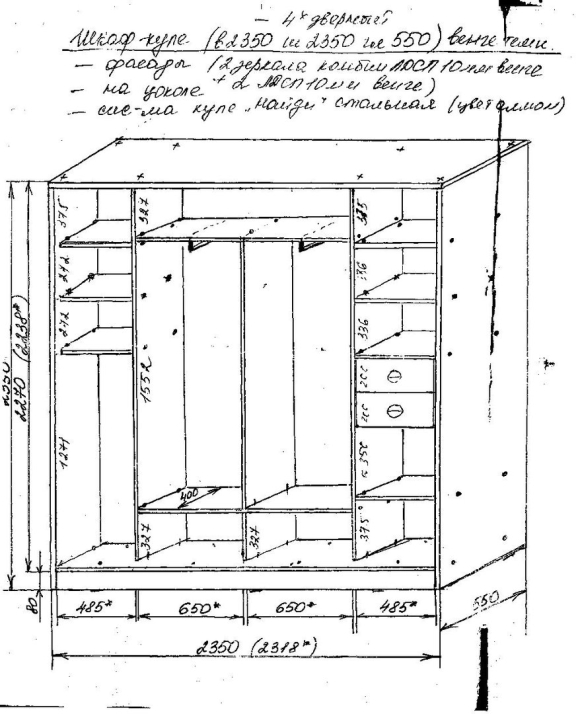 — 4х дверный
Шкаф-купе (в 2350 ш 2350 гл 550) венге темн.
— фасады (2 зеркала комби ЛДСП 10мм венге
— на цоколе + 2 ЛДСП 10мм венге)
— сис-ма купе "Найди" стальная (цвет аллюм)
375
327
375
272
336
272
336
1552
200
200
1271
350
400
327
327
375
2350
2270 (2238*)
80
485*
650*
650*
485*
550
2350 (2318*)